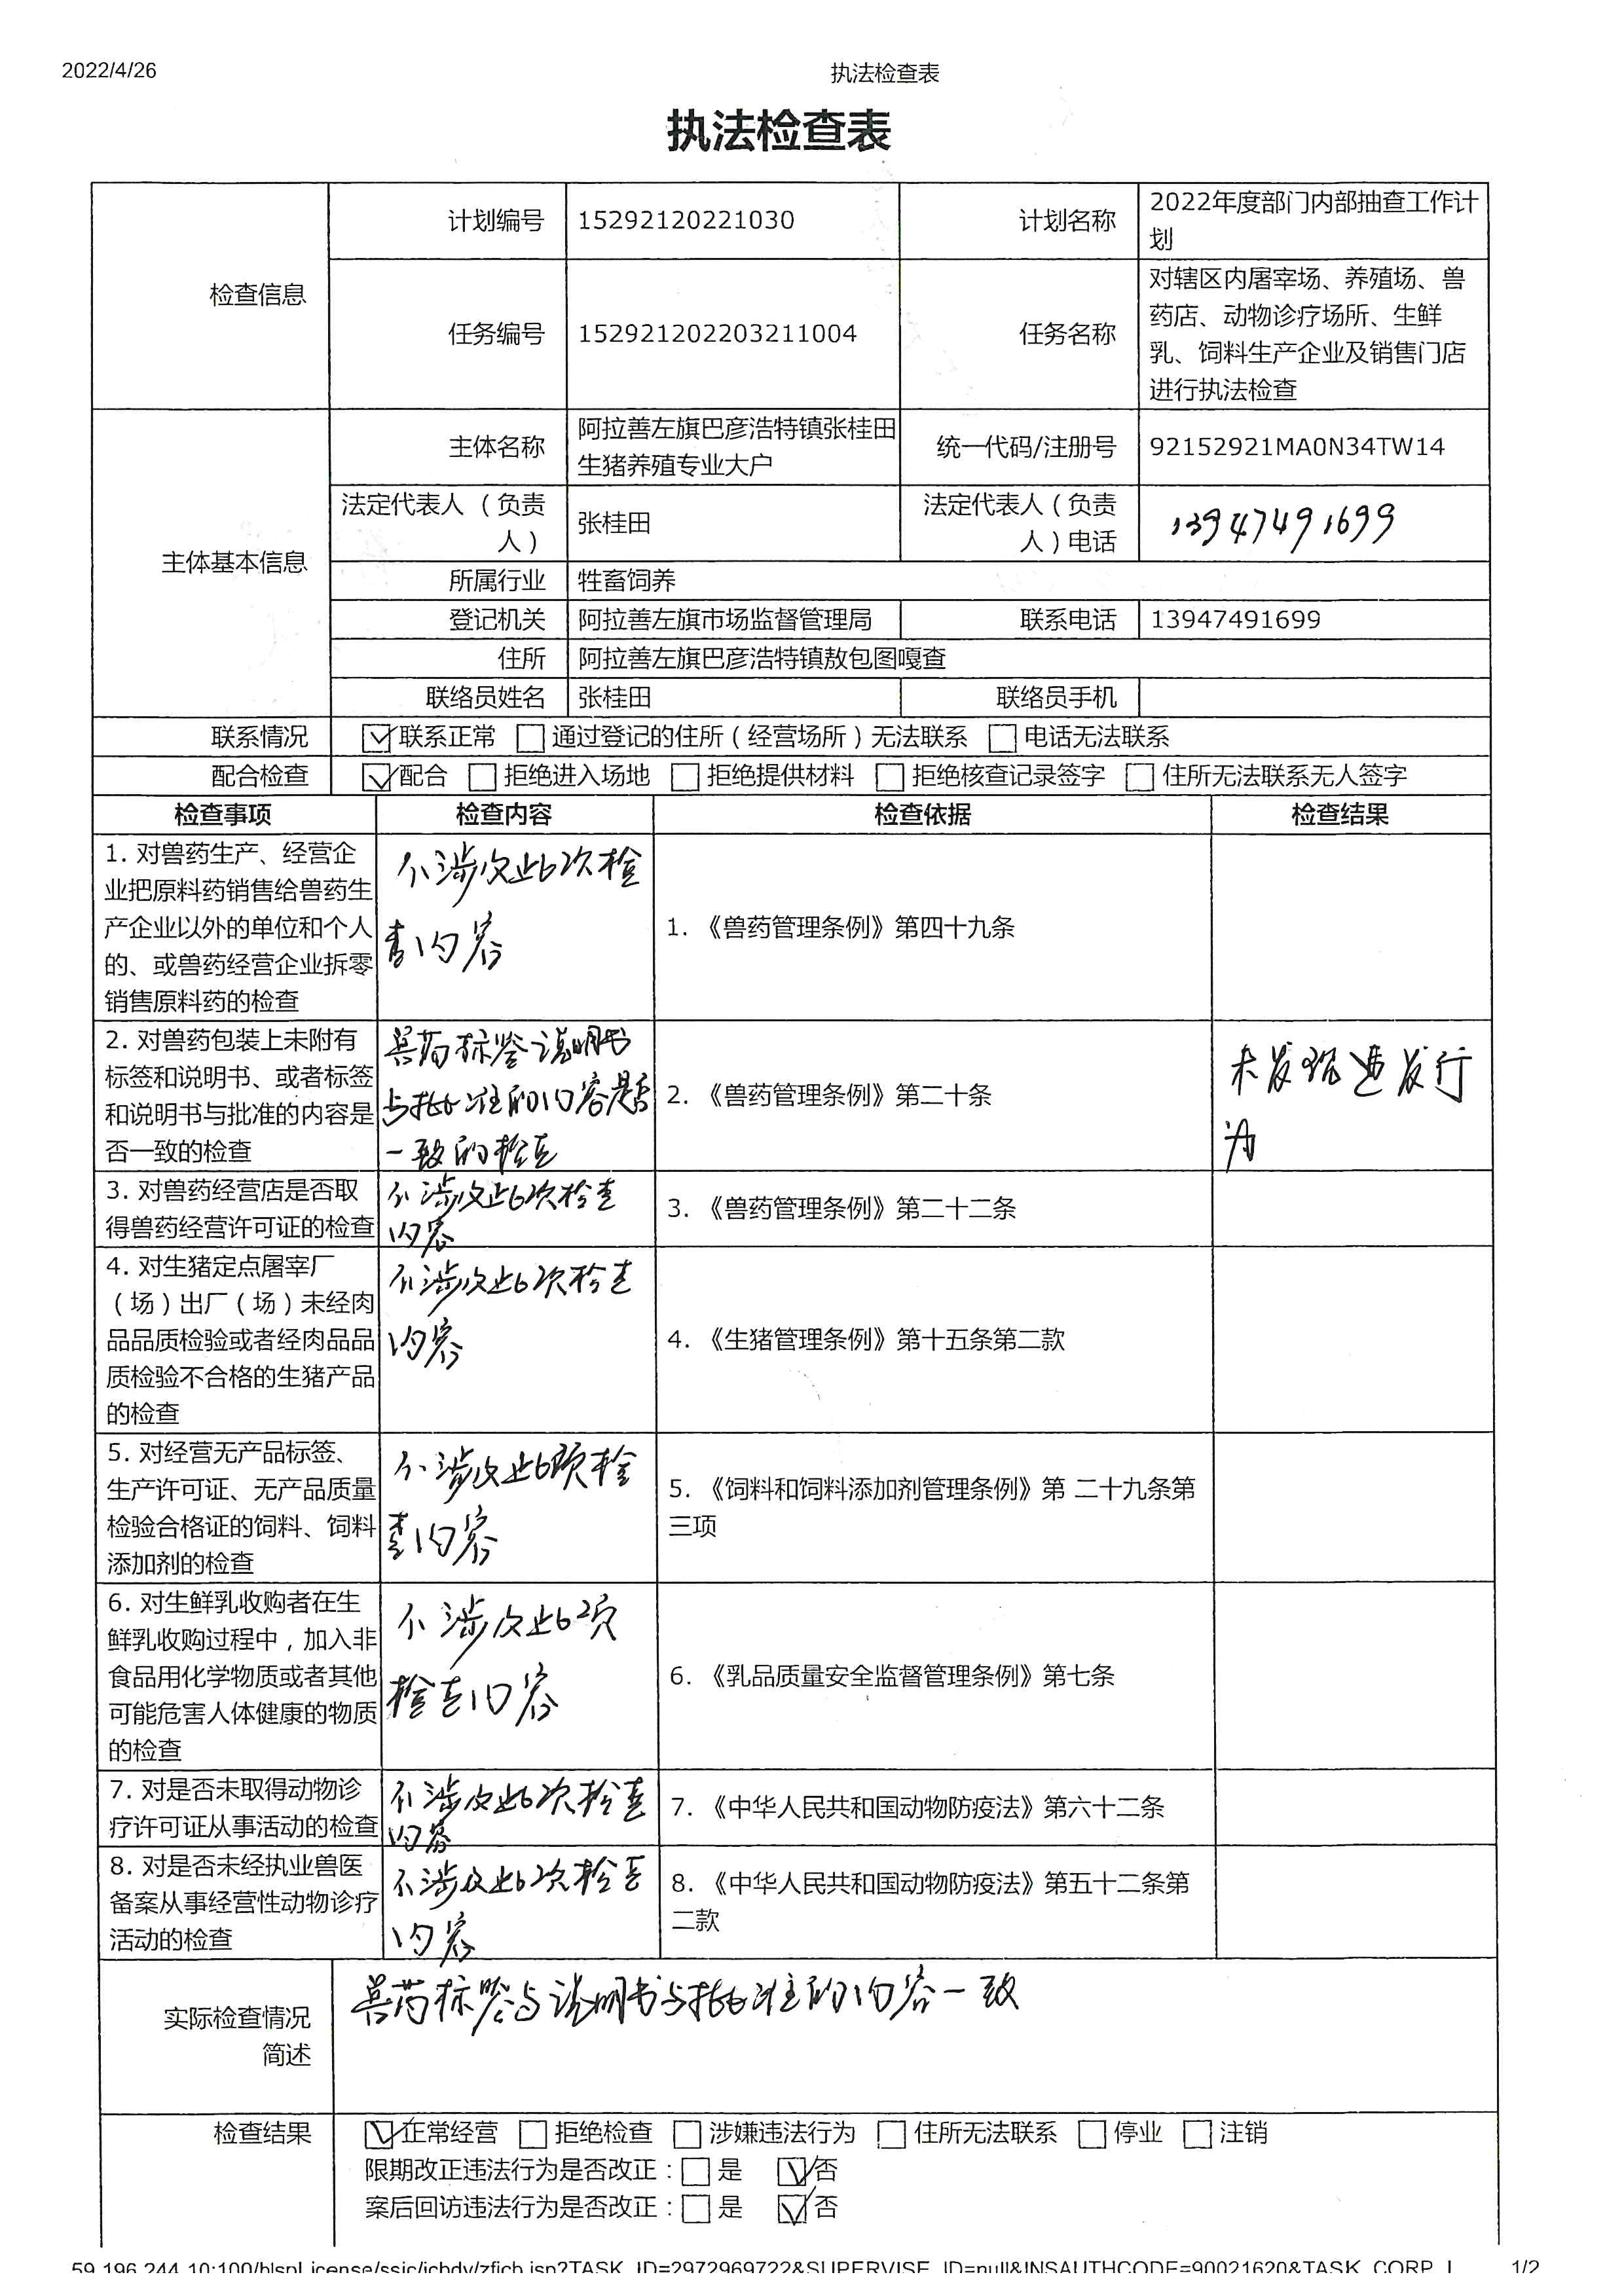 2022/4/26
执法检查表
执法检查表
检查信息
计划编号
15292120221030
计划名称
2022年度部门内部抽查工作计
划
任务编号
152921202203211004
任务名称
对辖区内屠宰场、养殖场、兽
药店、动物诊疗场所、生鲜
乳、饲料生产企业及销售门店
进行执法检查
主体基本信息
主体名称
阿拉善左旗巴彦浩特镇张桂田
生猪养殖专业大户
统一代码/注册号
92152921MA0N34TW14
法定代表人（负责
人）
张桂田
法定代表人（负责
人）电话
13947491699
所属行业
牲畜饲养
登记机关
阿拉善左旗市场监督管理局
联系电话
13947491699
住所
阿拉善左旗巴彦浩特镇敖包图嘎查
联络员姓名
张桂田
联络员手机
联系情况
联系正常 通过登记的住所（经营场所）无法联系 电话无法联系
配合检查
配合 拒绝进入场地 拒绝提供材料 拒绝核查记录签字 住所无法联系无人签字
检查事项
检查内容
检查依据
检查结果
1. 对兽药生产、经营企
业把原料药销售给兽药生
产企业以外的单位和个人
的、或兽药经营企业拆零
销售原料药的检查
不涉及此次检
查内容
1. 《兽药管理条例》第四十九条
2. 对兽药包装上未附有
标签和说明书、或者标签
和说明书与批准的内容是
否一致的检查
兽药标签说明书
与批准的内容是否
一致的检查
2. 《兽药管理条例》第二十条
未发现违发行
为
3. 对兽药经营店是否取
得兽药经营许可证的检查
不涉及此次检查
内容
3. 《兽药管理条例》第二十二条
4. 对生猪定点屠宰厂
（场）出厂（场）未经肉
品品质检验或者经肉品品
质检验不合格的生猪产品
的检查
不涉及此次检查
内容
4. 《生猪管理条例》第十五条第二款
5. 对经营无产品标签、
生产许可证、无产品质量
检验合格证的饲料、饲料
添加剂的检查
不涉及此项检
查内容
5. 《饲料和饲料添加剂管理条例》第 二十九条第
三项
6. 对生鲜乳收购者在生
鲜乳收购过程中，加入非
食品用化学物质或者其他
可能危害人体健康的物质
的检查
不涉及此项
检查内容
6. 《乳品质量安全监督管理条例》第七条
7. 对是否未取得动物诊
疗许可证从事活动的检查
不涉及此次检查
内容
7. 《中华人民共和国动物防疫法》第六十二条
8. 对是否未经执业兽医
备案从事经营性动物诊疗
活动的检查
不涉及此次检查
内容
8. 《中华人民共和国动物防疫法》第五十二条第
二款
实际检查情况
简述
兽药标签与说明书与批准的内容一致
检查结果
正常经营 拒绝检查 涉嫌违法行为 住所无法联系 停业 注销
限期改正违法行为是否改正：是 否
案后回访违法行为是否改正：是 否
59.196.244.10:100/blspLicense/ssjc/jcbdy/zfjcb.jsp?TASK_ID=2972969722&SUPERVISE_ID=null&INSAUTHCODE=90021620&TASK_CORP_I...
1/2